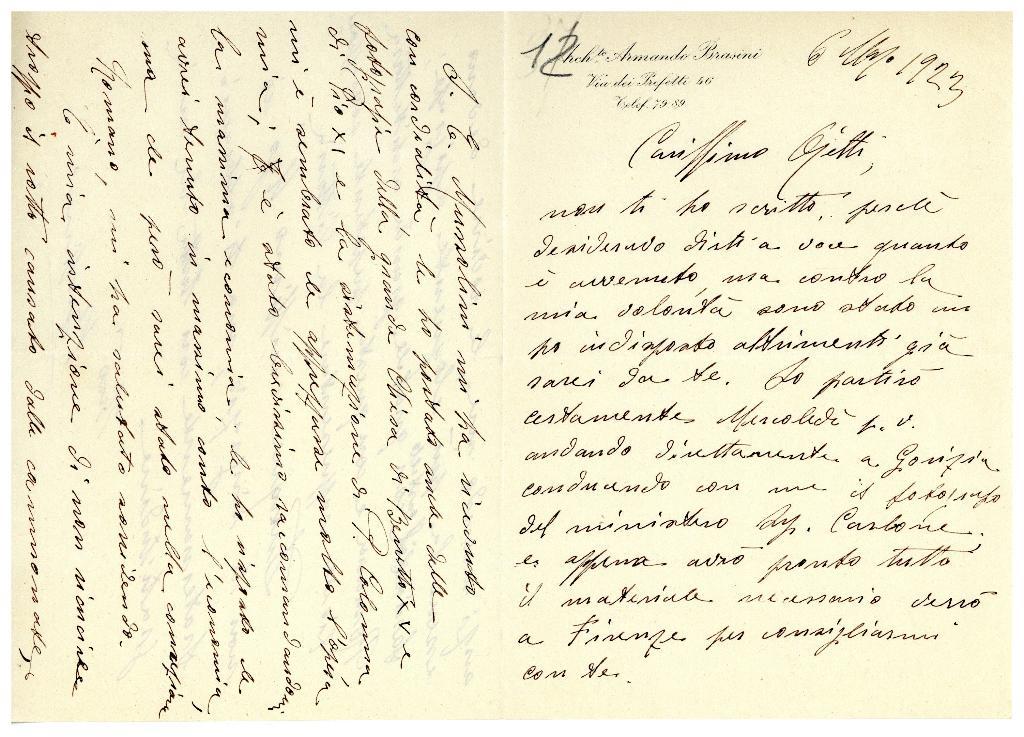 Archto Armando Brasini
Via dei Prefetti 46
Telef. 79-89
6 Mgo 1923
Carissimo Ojetti,
non ti ho scritto, perchè
desideravo dirti a voce quanto
è avvenuto, ma contro la
mia volontà sono stato un
po indisposto altrimenti già
sarei da te. Io partirò
certamente Mercoledì p. v.
andando direttamente a Gorizia
conducendo con me il fotografo
del ministero Carbone.
e appena avrò pronto tutto
il materiale necessario verrò
a Firenze per consigliarmi
con te.
Mussolini mi ha ricevuto
con cordialità le ho portato anche delle
fotografie della grande Chiesa di Benedetto XV e
di Pio XI e la sistemazione di P. Colonna
mi è sembrato che apprezzasse molto l'opera
mia, è stato benissimo raccomandandomi
la massima economia, le ho risposto che
avrei tenuto in massimo conto l'economia,
ma che però sarei stato nella concezione
Romano, mi ha salutato sorridendo.
La mia intenzione di non riuscire
troppo il rotto causato dalle cannonate,